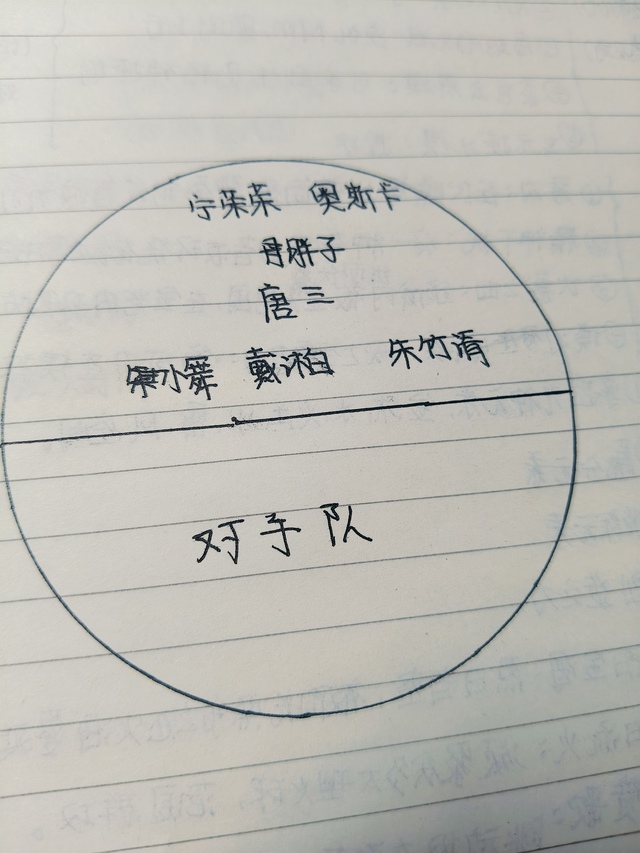 宁荣荣 奥斯卡
胖子
唐三
小舞 戴沐白 朱竹清
对手队